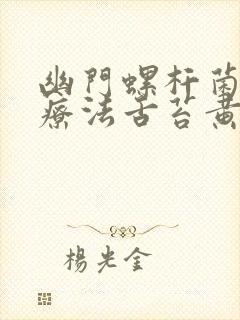 幽門螺杆菌
療法舌苔黃
楊光金